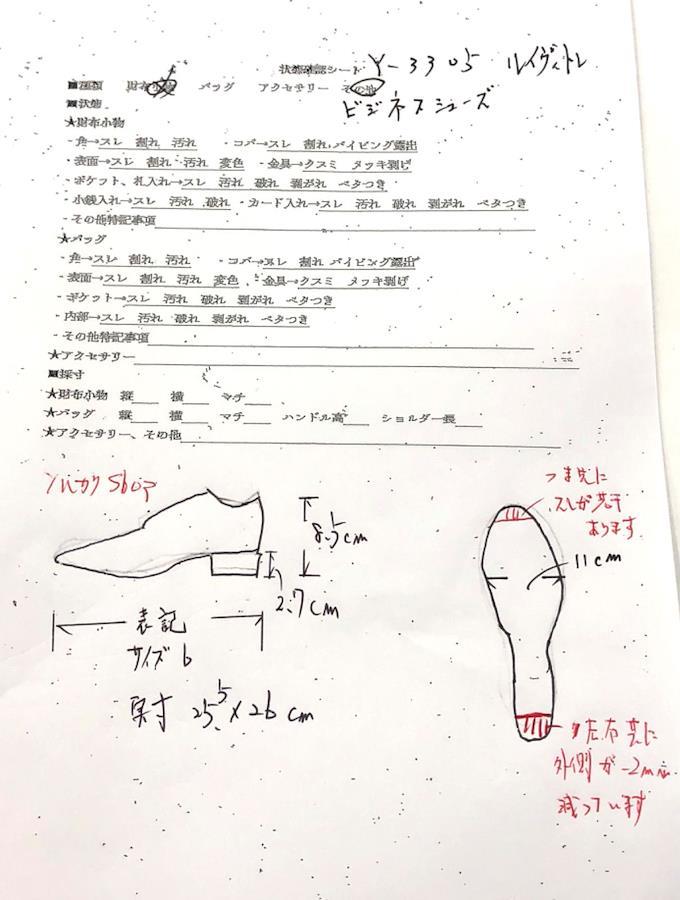 状態確認シート Y-3305 ルイヴィトン
■種類 財布小物 バッグ アクセサリー その他
ビジネスシューズ
■状態
★財布小物
・角→スレ 割れ 汚れ ・コバ→スレ 割れ パイピング露出
・表面→スレ 割れ 汚れ 変色 ・金具→クスミ メッキ剥げ
・ポケット、札入れ→スレ 汚れ 破れ 剥がれ ベタつき
・小銭入れ→スレ 汚れ 破れ ・カード入れ→スレ 汚れ 破れ 剥がれ ベタつき
・その他特記事項
★バッグ
・角→スレ 割れ 汚れ ・コバ→スレ 割れ パイピング露出
・表面→スレ 割れ 汚れ 変色 ・金具→クスミ メッキ剥げ
・ポケット→スレ 汚れ 破れ 剥がれ ベタつき
・内部→スレ 汚れ 破れ 剥がれ ベタつき
・その他特記事項
★アクセサリー
■採寸
★財布小物 縦 横 マチ
★バッグ 縦 横 マチ ハンドル高 ショルダー長
★アクセサリー、その他
ソルカリShop
8.5cm
2.7cm
表記
サイズ6
実寸 25.5×26cm
つま先に
スレが若干
あります
11cm
左右共に
外側が-2mm
減っています